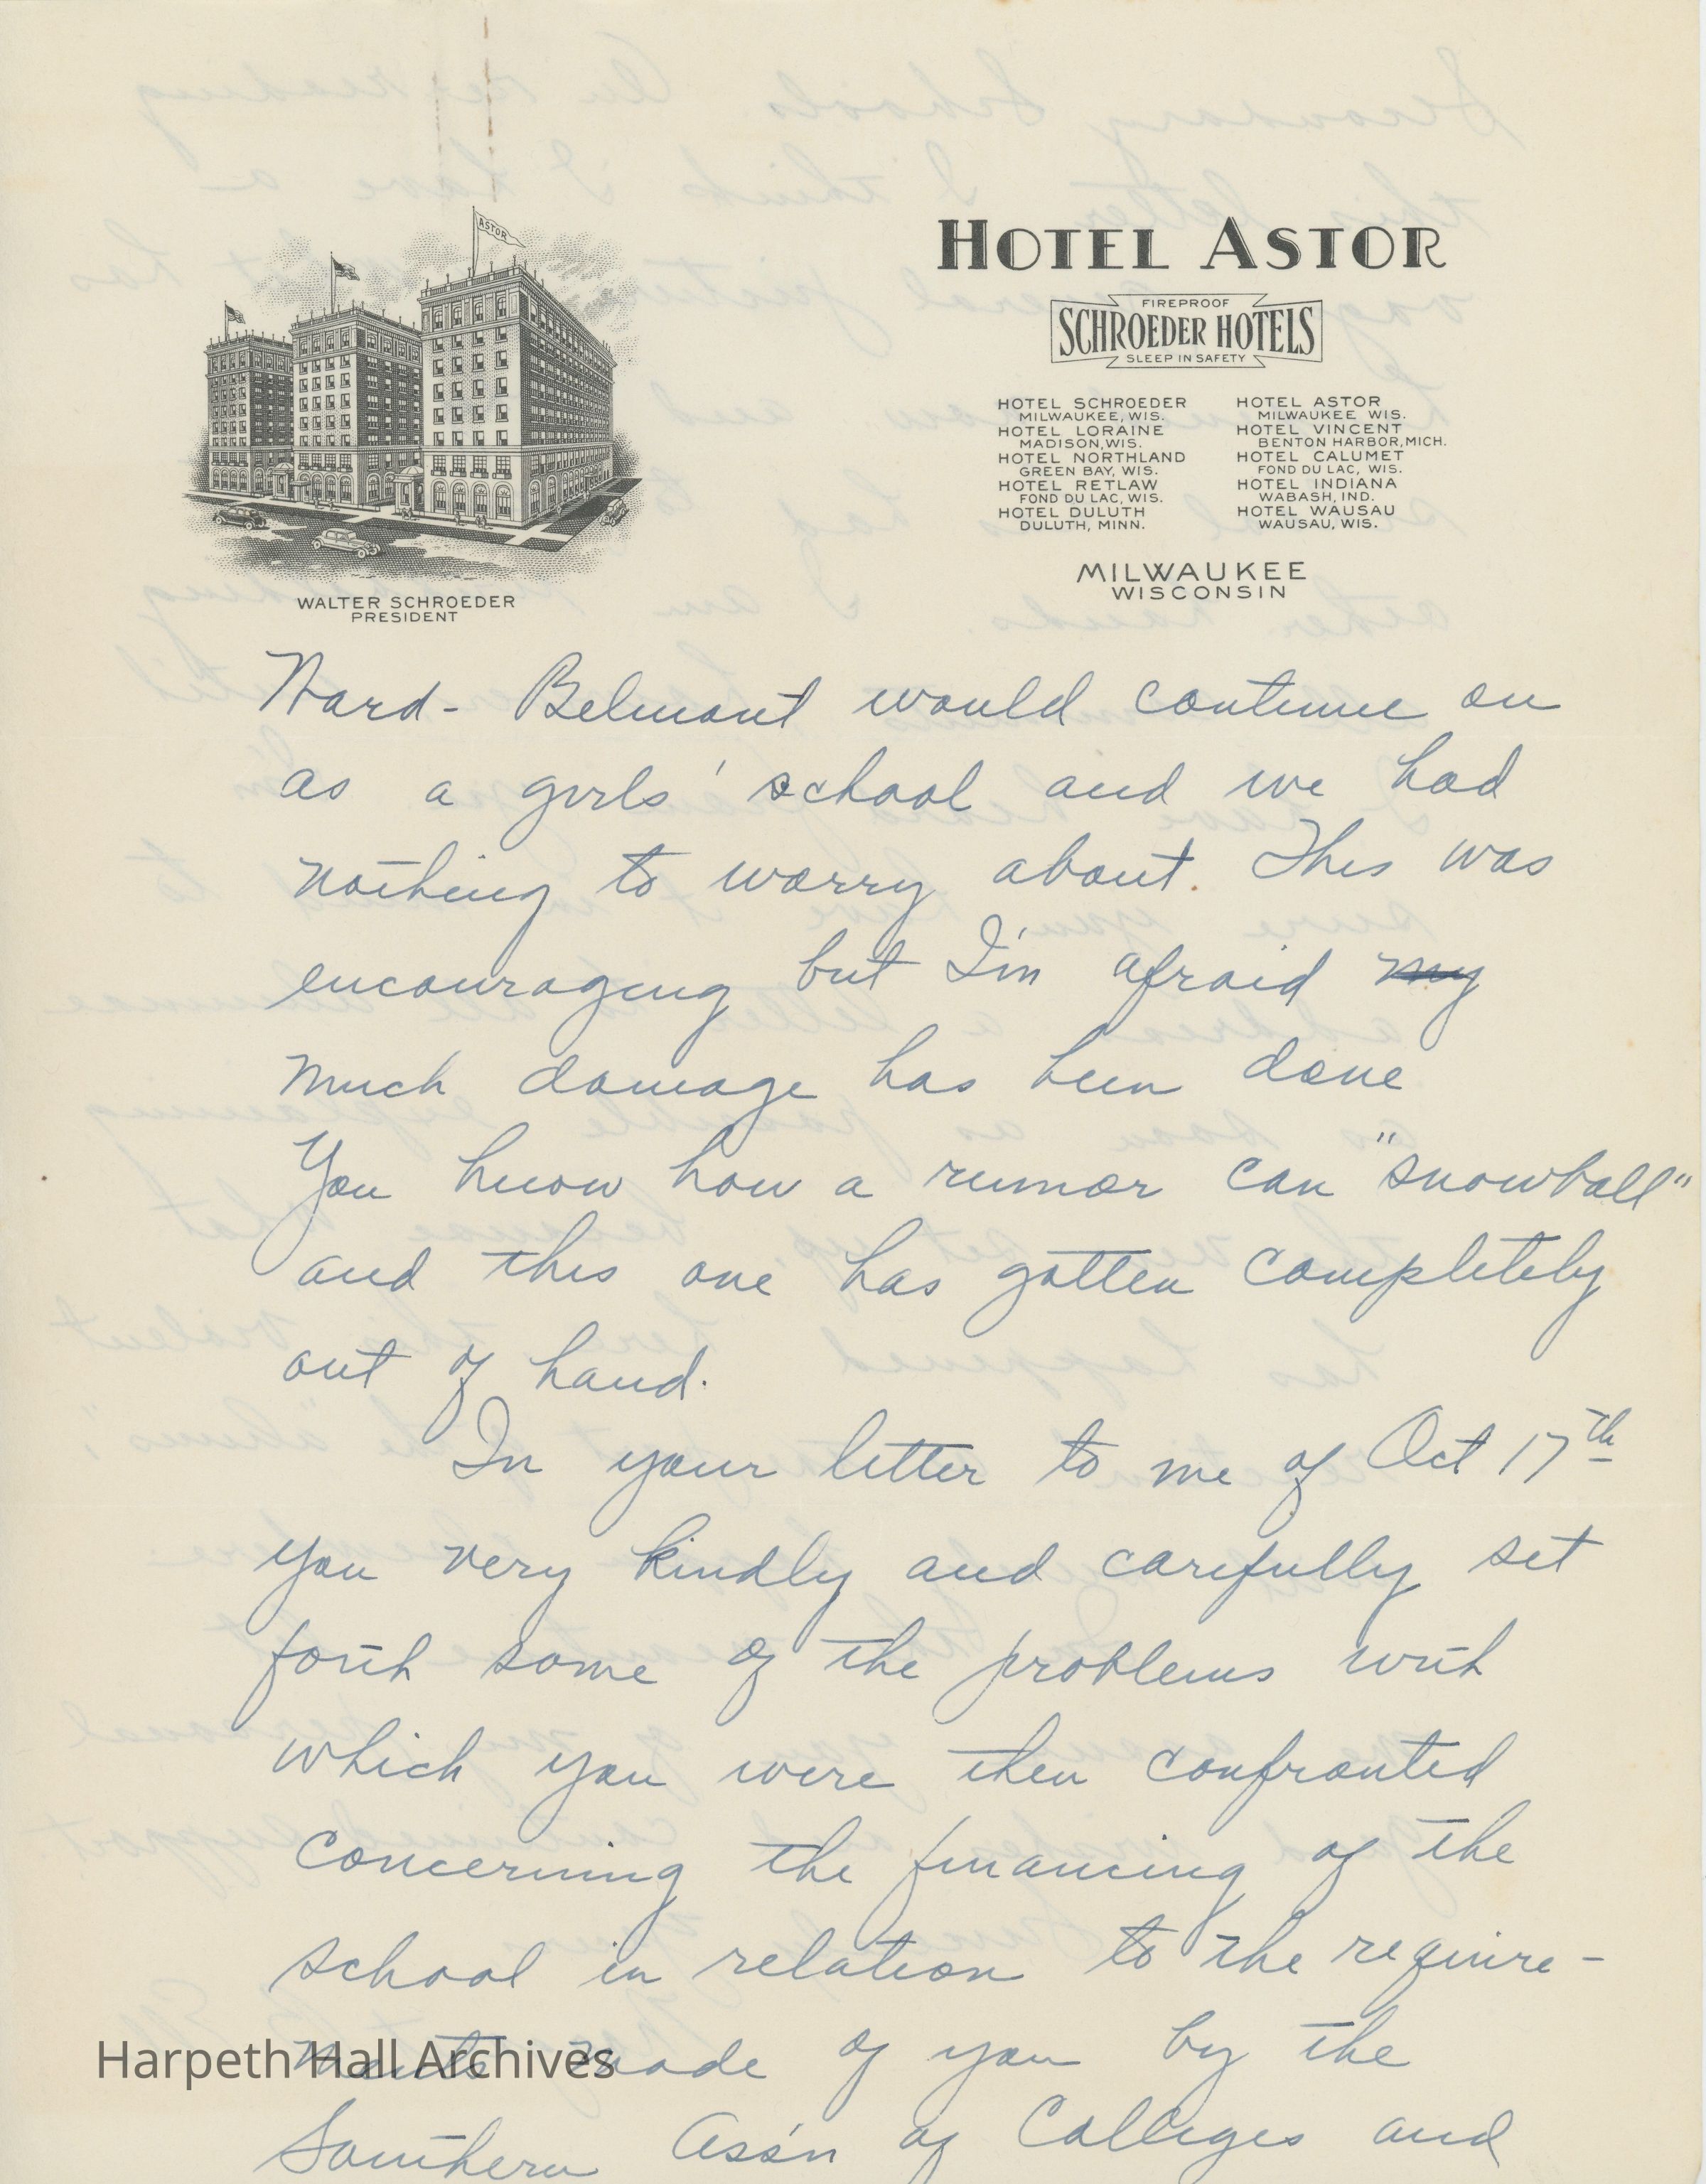 ASTOR
HOTEL ASTOR
FIREPROOF
SCHROEDER HOTELS
SLEEP IN SAFETY
HOTEL SCHROEDER
MILWAUKEE, WIS.
HOTEL LORAINE
MADISON, WIS.
HOTEL NORTHLAND
GREEN BAY, WIS.
HOTEL RETLAW
FOND DU LAC, WIS.
HOTEL DULUTH
DULUTH, MINN.
HOTEL ASTOR
MILWAUKEE WIS.
HOTEL VINCENT
BENTON HARBOR, MICH.
HOTEL CALUMET
FOND DU LAC, WIS.
HOTEL INDIANA
WABASH, IND.
HOTEL WAUSAU
WAUSAU, WIS.
MILWAUKEE
WISCONSIN
WALTER SCHROEDER
PRESIDENT
Ward-Belmont would continue on
as a girls' school and we had
nothing to worry about. This was
encouraging but I'm afraid my
much damage has been done
You know how a rumor can "snowball"
and this one has gotten completely
out of hand.
In your letter to me of Oct 17th
you very kindly and carefully set
forth some of the problems with
which you were then confronted
concerning the financing of the
school in relation to the require-
ments made of you by the
Southern Ass'n of Colleges and
Harpeth Hall Archives